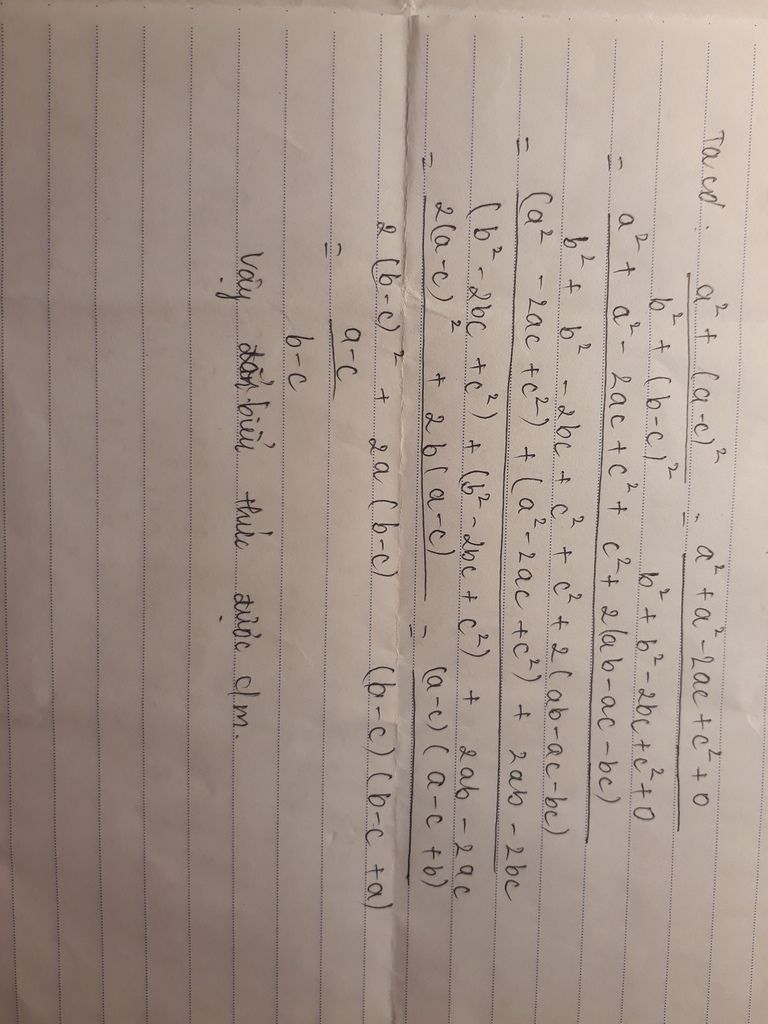 Ta có : a² + (a-c)² / b² + (b-c)² = a² + a² - 2ac + c² + 0 / b² + b² - 2bc + c² + 0
= a² + a² - 2ac + c² + c² + 2(ab - ac - bc) / b² + b² - 2bc + c² + c² + 2(ab - ac - bc)
= (a² - 2ac + c²) + (a² - 2ac + c²) + 2ab - 2bc / (b² - 2bc + c²) + (b² - 2bc + c²) + 2ab - 2ac
= 2(a-c)² + 2b(a-c) / 2(b-c)² + 2a(b-c) = (a-c)(a-c+b) / (b-c)(b-c+a)
= a-c / b-c
Vậy biểu thức được c/m.